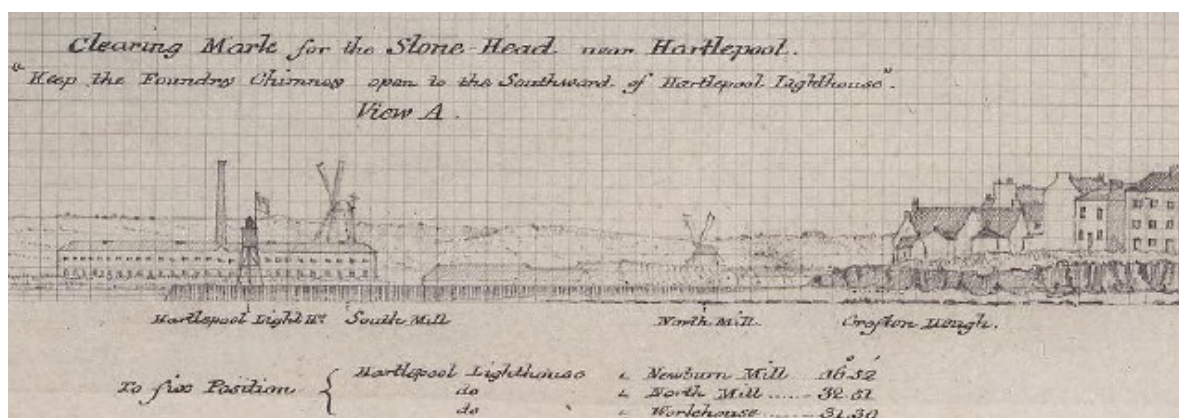 Clearing Mark for the Stone Head near Hartlepool.
"Keep the Foundry Chimney open to the Southward of Hartlepool Lighthouse".
View A.
Hartlepool Light Ho. South Mill North Mill. Crofton Heugh.
To fix Position { Hartlepool Lighthouse ∠ Newburn Mill 16°.52′
do ∠ North Mill ...... 32.51
do ∠ Workhouse ...... 31.30